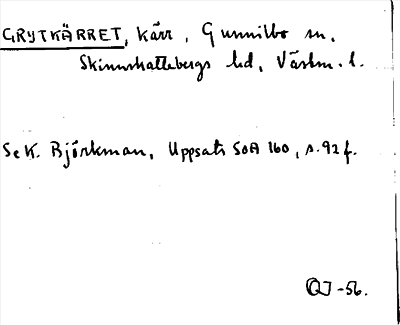 GRYTKÄRRET, kärr, Gunnilbo sn,
Skinnskattebergs hd, Västm. l.
Se K. Björkman, Uppsats SOA 160, s. 92 f.
OJ -56.